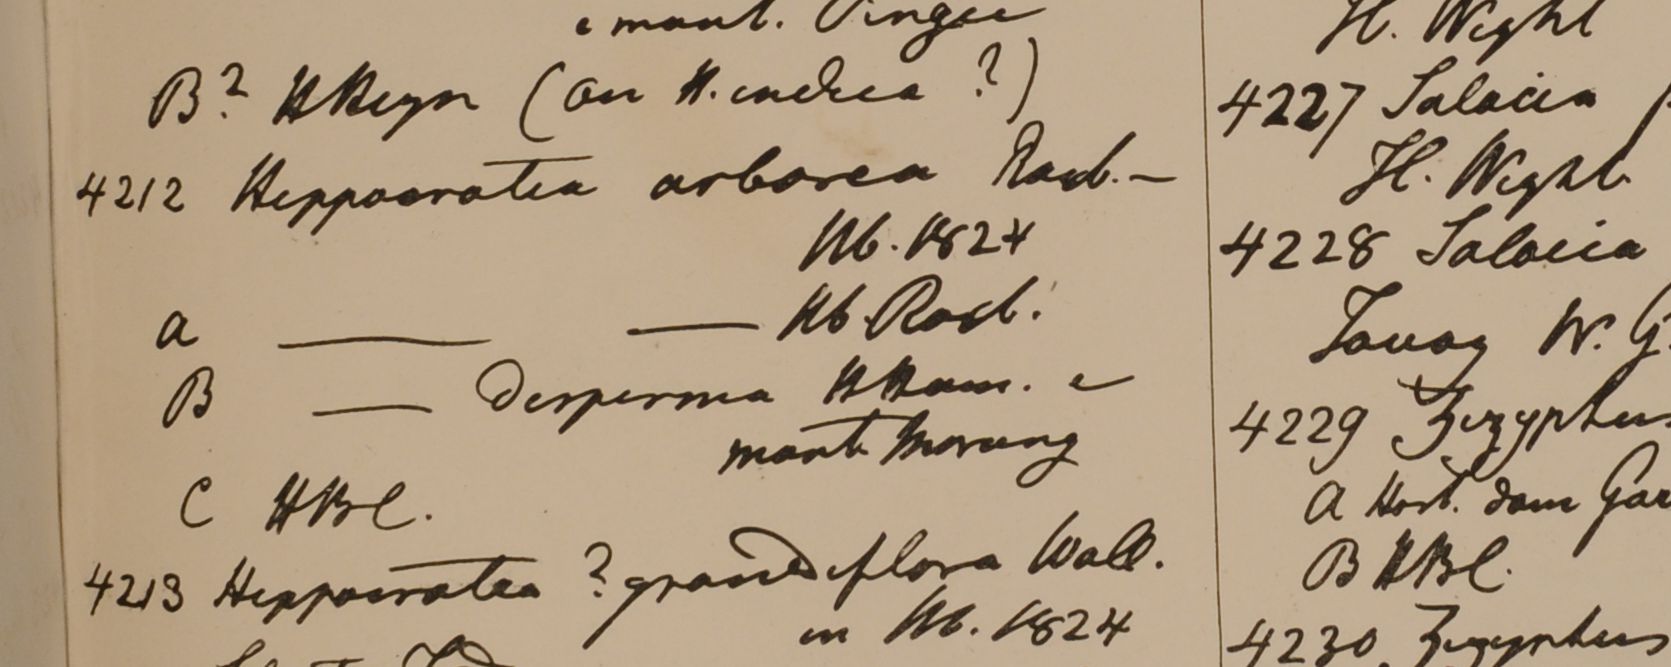 e mont. Pingee
B? HHeyn (an H. indica ?)
4212 Hippocratea arborea Roxb. —
Hb. 1824
a —— —— Hb Roxb.
B —— disperma HHam. e
mont Morung
C HBC.
4213 Hippocratea ? grandiflora Wall.
in Hb. 1824
H. Wight
4227 Salacia
H. Wight
4228 Salacia
Tavoy W. G.
4229 Zizyphus
a Hort. dom Gar
B HBC.
4230 Zizyphus